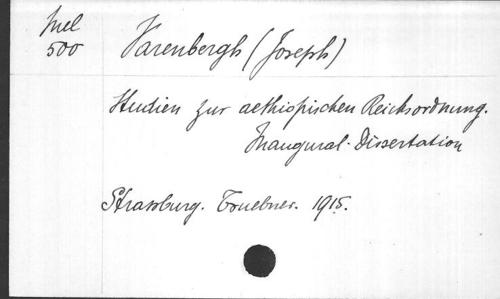 Mel
500
Varenbergh (Joseph)
Studien zur aethiopischen Reichsordnung.
Inaugural-Dissertation
Strassburg. Truebner. 1915.